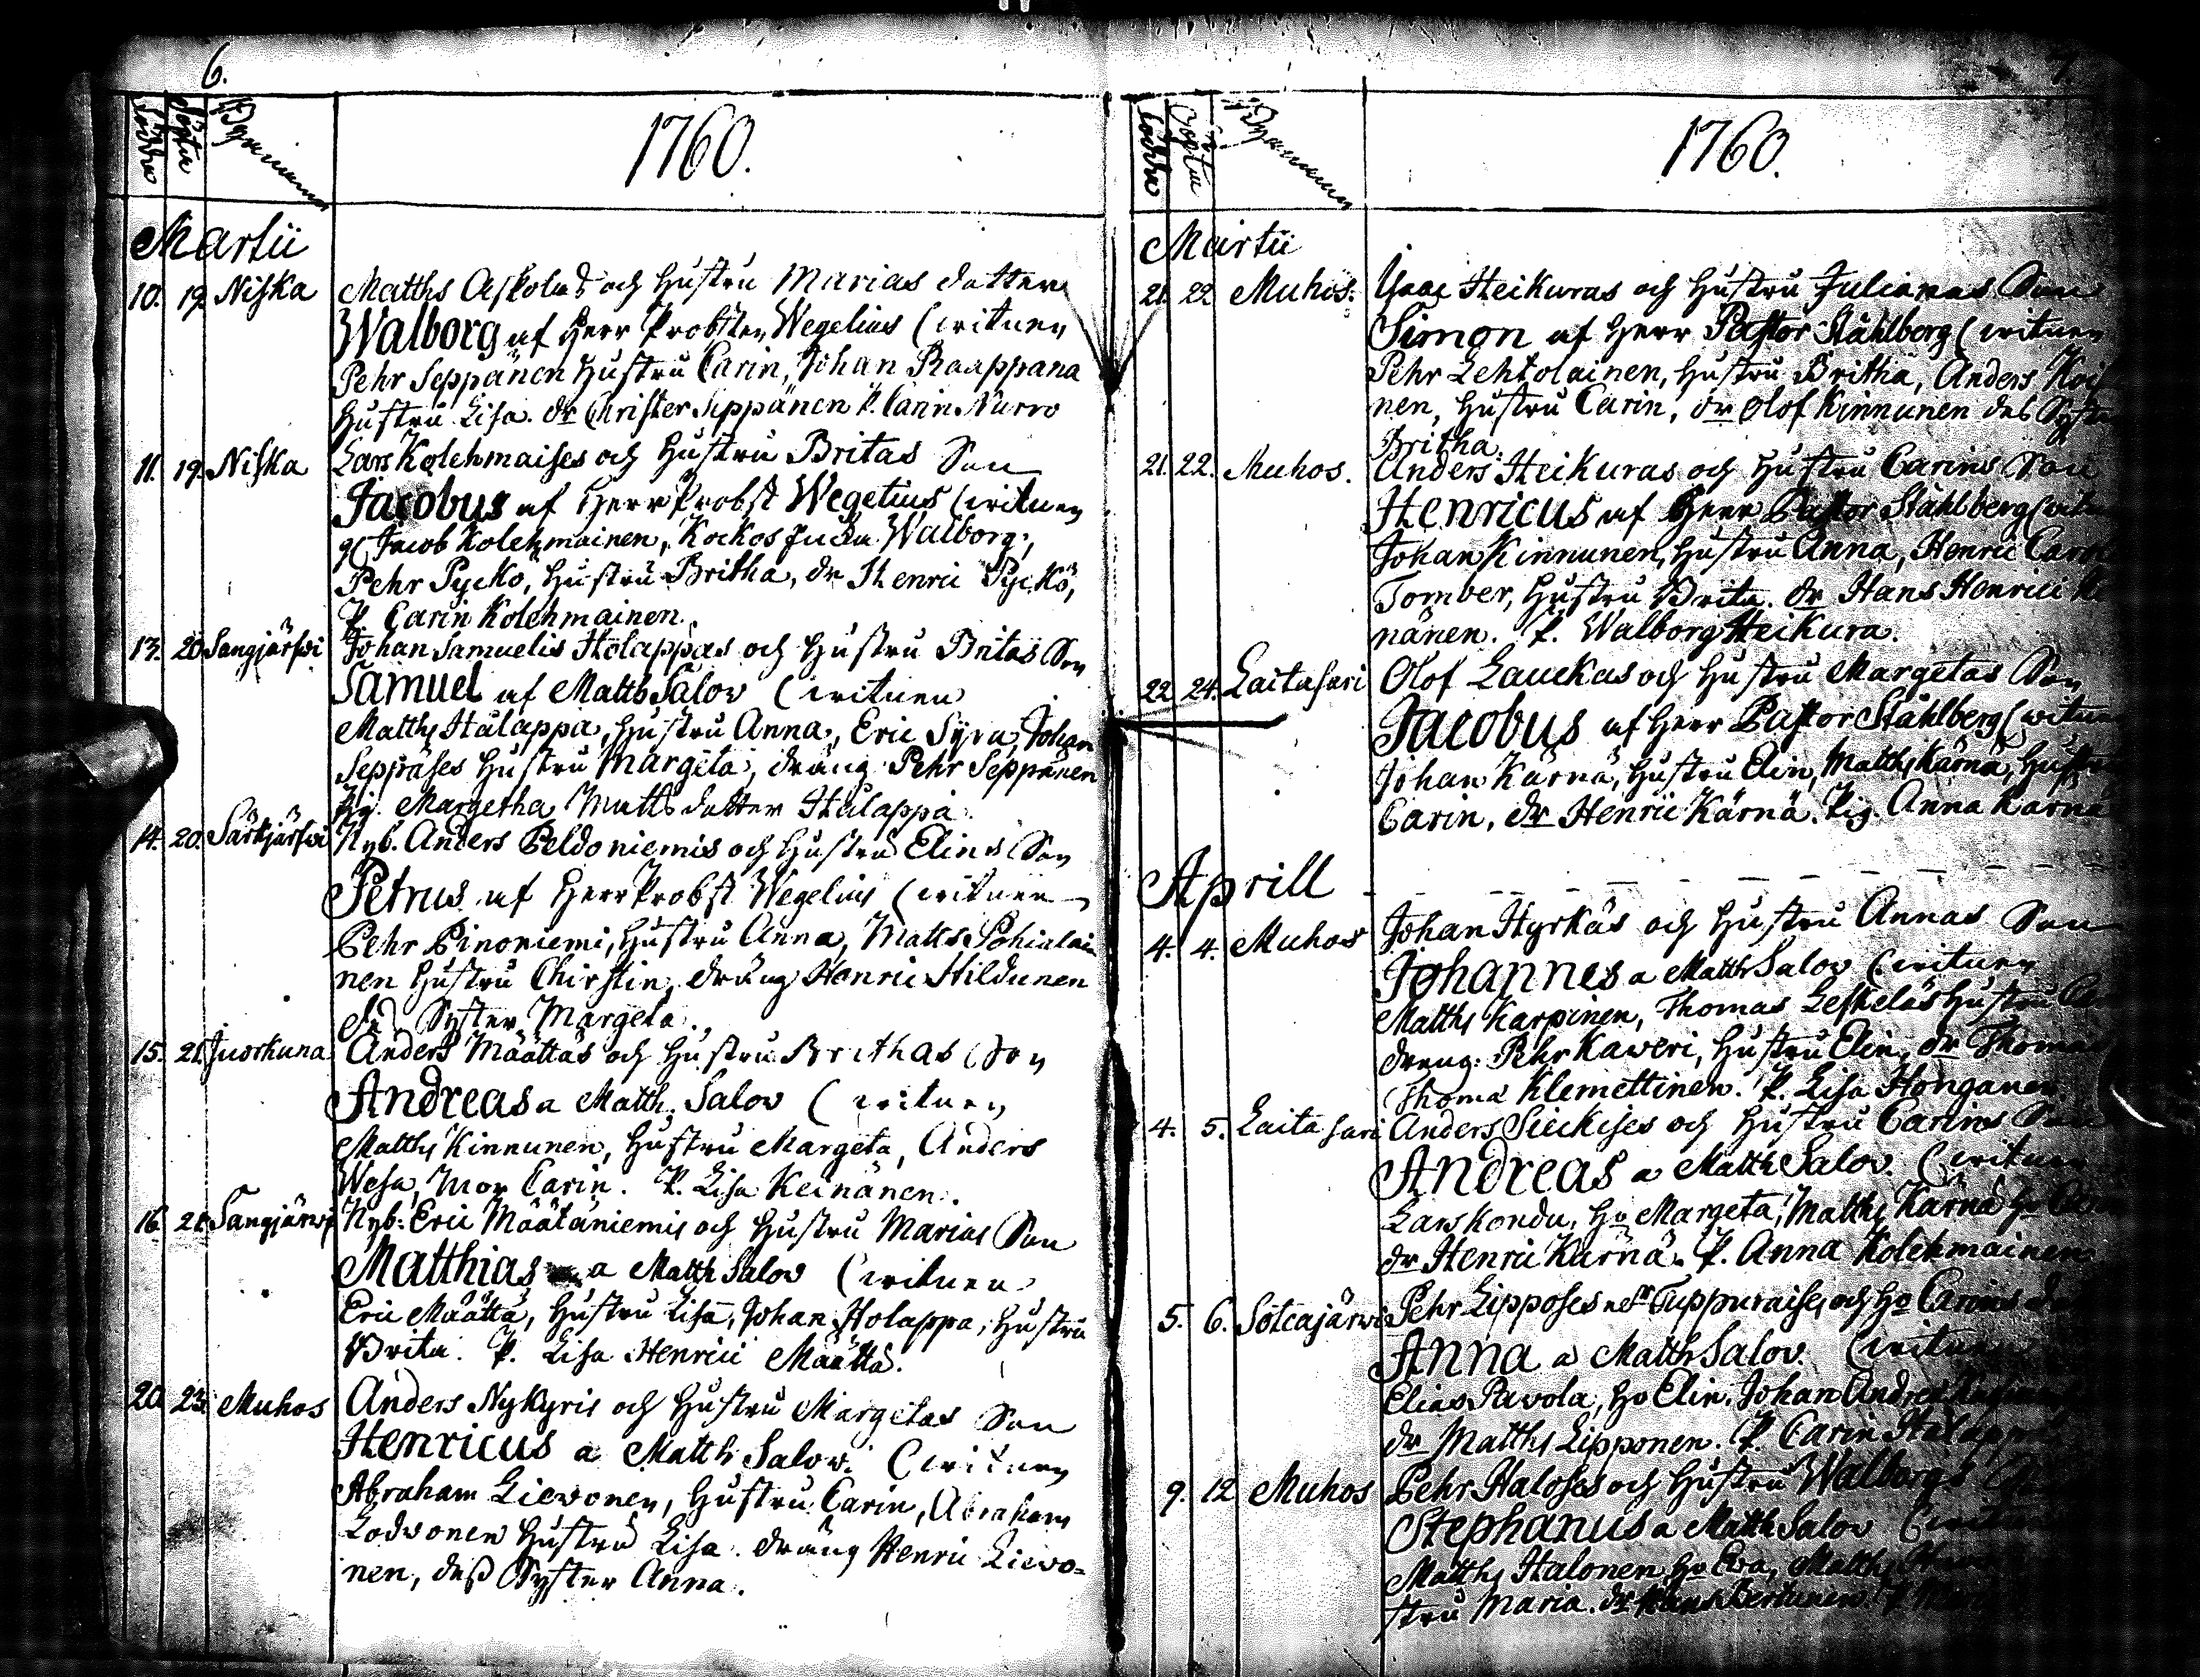 6.
födde
döpte
Byarnamn
1760.
Martii
10. 19. Niska Matths Askolas och hustru Marias dotter
Walborg af Herr Probsten Wegelius (witnen
Pehr Seppänen hustru Carin, Johan Raappana
hustru Lisa. dr Christer Seppänen P. Carin Nurro
11. 19. Niska Lars Kolehmaises och hustru Britas Son
Jacobus af Herr Probst Wegelius (witnen
Jacob Kolehmainen, Kockos Walborg,
Pehr Pycko, hustru Britha, dr Henric Pyckö,
P. Carin Kolehmainen.
13. 20. Sangjärfwi Johan Samuelis Holappas och hustru Britas Son
Samuel af Matths Salov (witnen
Matths Halappa, hustru Anna, Eric Syra, Johan
Seppäses hustru Margeta, dräng Pehr Seppänen
Pig. Margetha Matts dotter Halappa
14. 20. Särkjärfwi Nyb. Anders Peldoniemis och hustru Elins Son
Petrus af Herr Probst Wegelius (witnen
Pehr Pinoniemi, hustru Anna, Matts Pohialai
nen hustru Chirstin, dräng Henric Hildunen
des Syster Margeta.
15. 21. Juorkuna Anders Määttäs och hustru Brithas Son
Andreas a Matth. Salov (witnen
Matths Kinnunen, hustru Margeta, Anders
Wesa, mor Carin. P. Lisa Keinänen.
16. 21. Sangjärwi Nyb: Eric Määtäniemis och hustru Marias Son
Matthias a Matth Salov (witnen
Eric Määttä, hustru Lisa, Johan Holappa, hustru
Brita. P. Lisa Henrici Määttä.
20. 23. Muhos Anders Nykyris och hustru Margetas Son
Henricus a Matth Salow. (witnen
Abraham Liewonen, hustru Carin, Abraham
Lodwonen hustru Lisa. dräng Henric Liewo-
nen, dess Syster Anna.
7
födde
döpte
Byarnamn
1760.
Martii
21. 22 Muhos. Isaac Heikuras och hustru Julianas Son
Simon af Herr Pastor Ståhlberg (witnen
Pehr Lehtolainen, hustru Britha, Anders
nen, hustru Carin, dr Olof Kinnunen des Syster
Britha.
21. 22. Muhos. Anders Heikuras och hustru Carins Son
Henricus af Herr Pastor Ståhlberg
Johan Kinnunen, hustru Anna, Henric
Tomber, hustru Brita. dr Hans Henrici
nänen. P. Walborg Heikura.
22 24. Laitasari Olof Lauckas och hustru Margetas Son
Jacobus af Herr Pastor Ståhlberg (witnen
Johan Kärnä, hustru Elin, Matths Kärnä, hustru
Carin, dr Henric Kärnä. Pig. Anna Kärnä
Aprill
4. 4. Muhos Johan Hyrkäs och hustru Annas Son
Johannes a Matth Salov (witnen
Matths Karpinen, Thomas Leskeläs hustru
dreng. Pehr Kaweri, hustru Elin, dr Thomas
Thoma Klemettinen. P. Lisa Honganen
4. 5. Laitasari Anders Sieckises och hustru Carins Son
Andreas a Matth Salov. (witnen
Lars Kondu, Ho Margeta, Matths Kärnä Ho
dr Henric Kärnä. P. Anna Kolehmainen
5. 6. Sotcajärwi Pehr Lipposes Tuppuraises och Ho Carins
Anna a Matth Salov. (witnen
Elias Pavola, Ho Elin, Johan
dr Matths Lipponen. P. Carin
9. 12 Muhos Pehr Haloses och hustru Walborgs
Stephanus a Matth Salov (witnen
Matths Halonen Ho Eva, Matths
stru Maria. dr